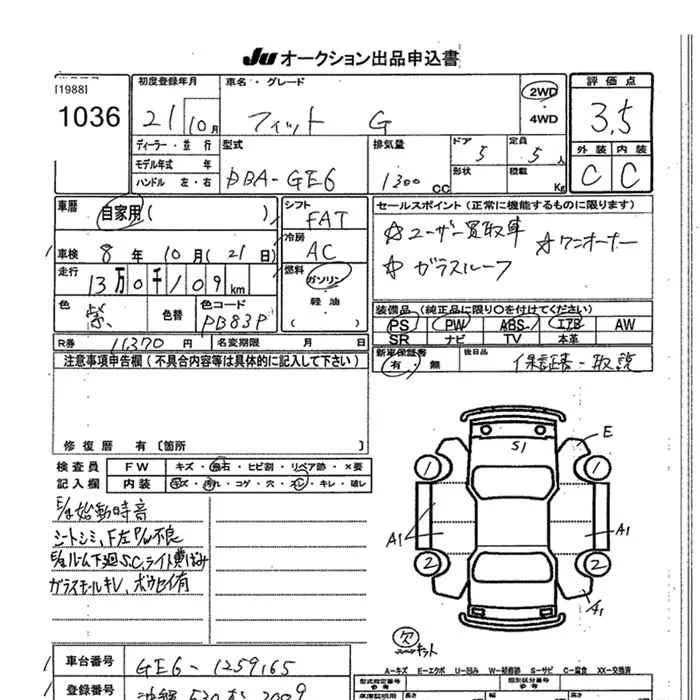 JU オークション出品申込書
[1988]
1036
初度登録年月
21 10月
車名・グレード
フィット G
2WD
4WD
評価点
3.5
外装 内装
C C
ディーラー・並行
モデル年式 年
ハンドル 左・右
型式
DBA-GE6
排気量
1300cc
ドア
5
形状
定員
5人
積載
Kg
車歴
自家用( )
シフト
FAT
冷房
AC
セールスポイント (正常に機能するものに限ります)
☆ユーザー買取車 ☆ワンオーナー
☆ガラスルーフ
車検 8年10月(21日)
走行 13万0千109km
燃料
ガソリン
軽油
( )
色 紫
色替
色コード
PB83P
装備品 (純正品に限り〇を付けてください)
PS PW ABS エアB AW
SR ナビ TV 本革
R券 11,370円
名変期限 月 日
新車保証書
有・無
後日品
保証書・取説
注意事項申告欄(不具合内容等は具体的に記入して下さい)
修復歴 有〔箇所
検査員
記入欄
FW キズ・飛石・ヒビ割・リペア跡・×要
内装 キズ・汚れ・コゲ・穴・スレ・キレ・破レ
E/g始動時音
シートシミ、F左P/W不良
E/gルーム下廻S.C、ライト黄ばみ
ガラスモールキレ、ホウセイ有
S1
E
1 1
A1 A1
2 2
A1
欠
A-キズ E-エクボ U-凹み W-補修跡 S-サビ C-腐食 XX-交換済
車台番号
GE6-1259165
型式指定番号
参考
類別区分番号
参考
登録番号
長さ
幅
高さ